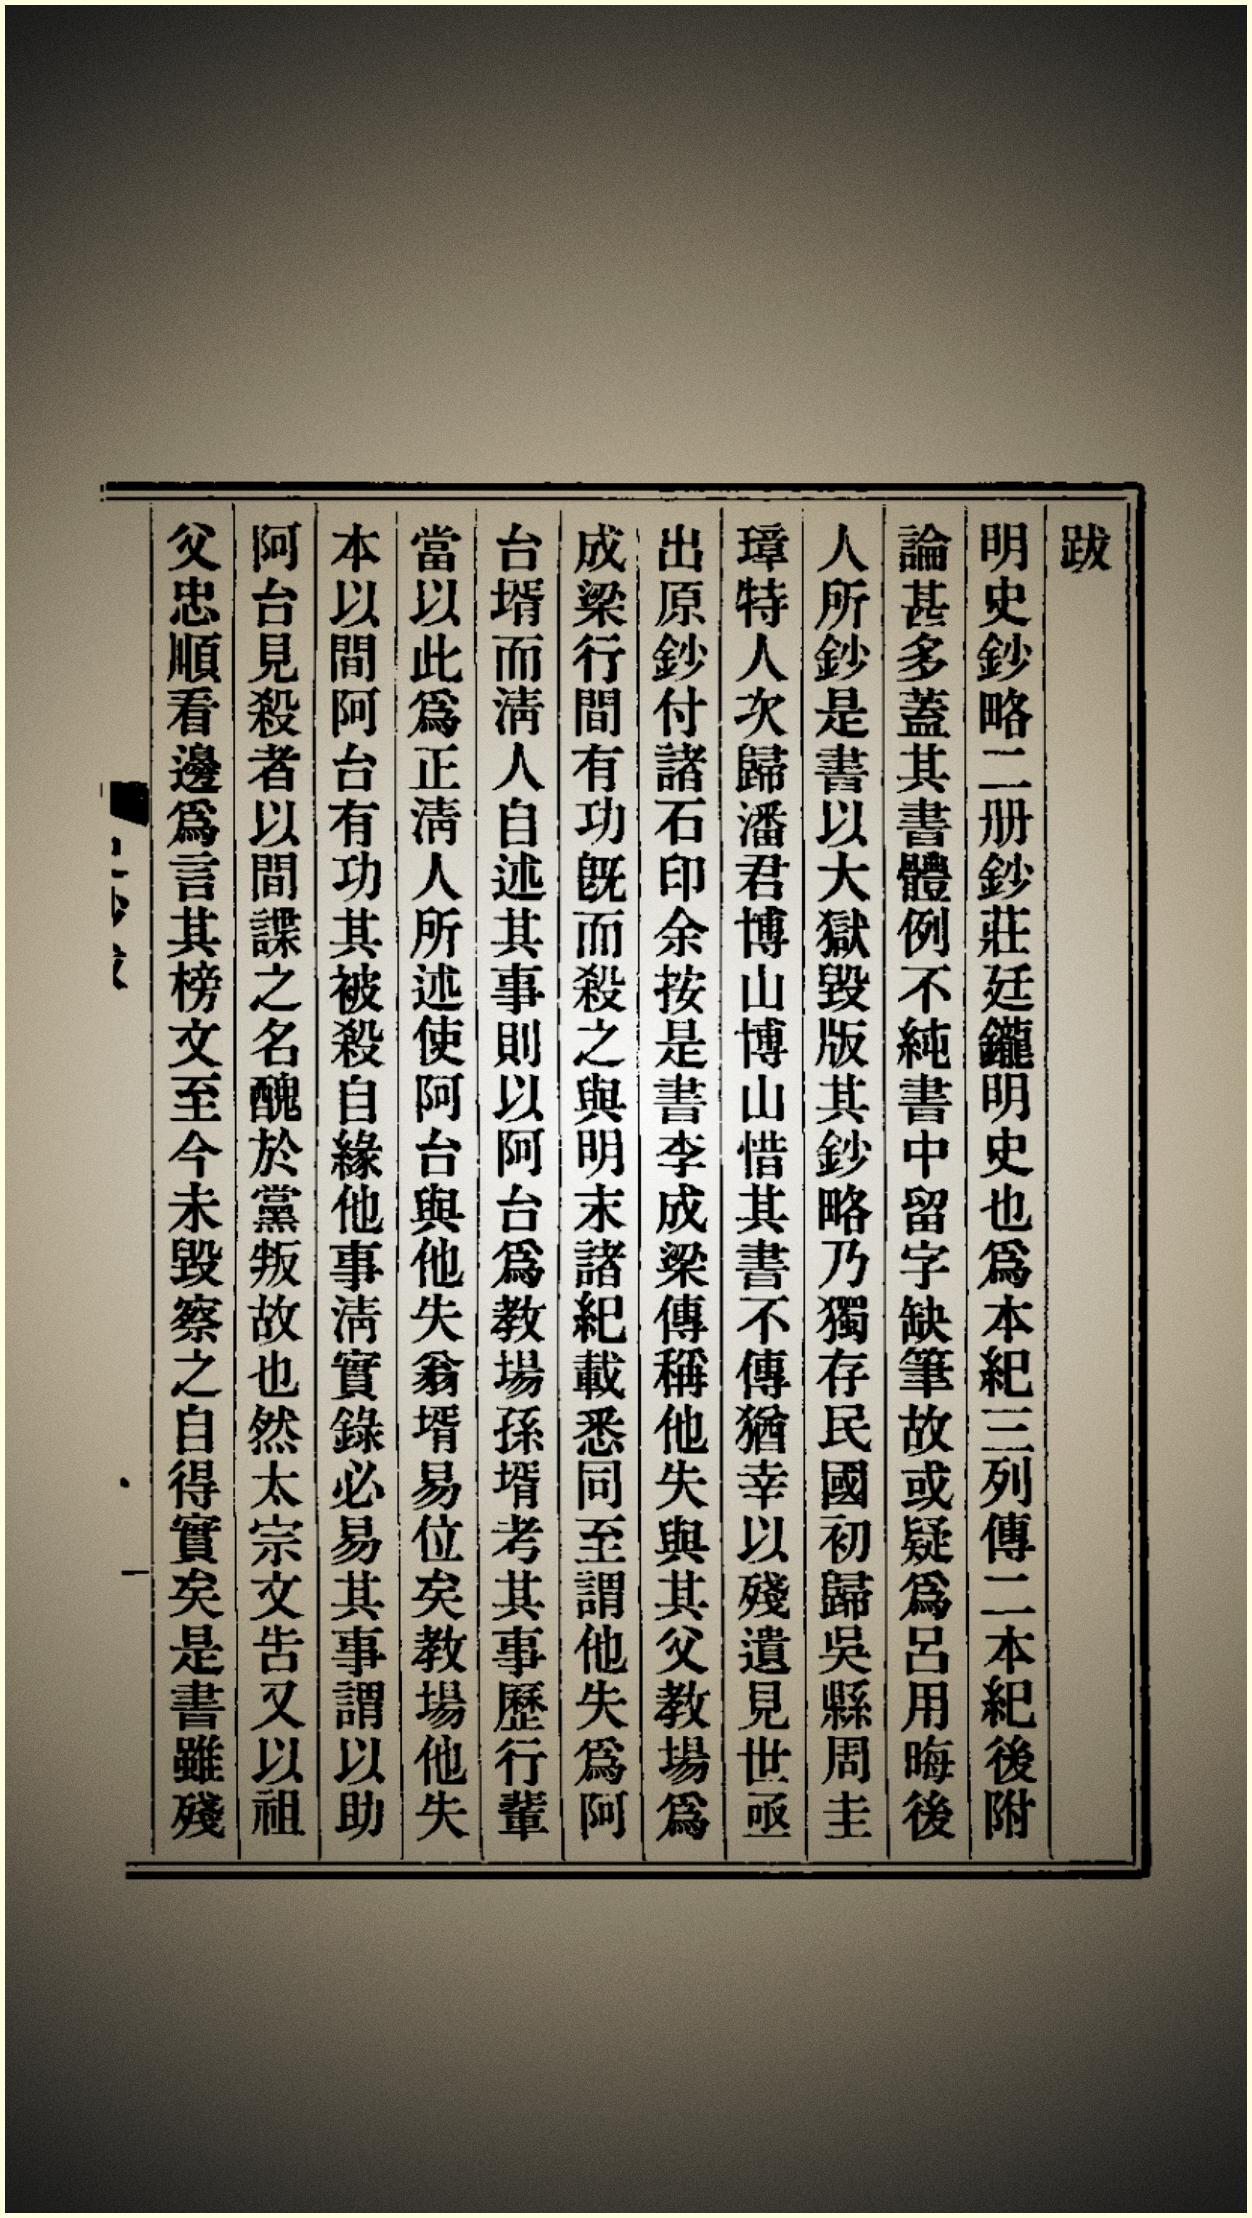 跋
明史鈔略二册鈔莊廷鑨明史也爲本紀三列傳二本紀後附
論甚多蓋其書體例不純書中留字缺筆故或疑爲呂用晦後
人所鈔是書以大獄毀版其鈔略乃獨存民國初歸吳縣周圭
璋特人次歸潘君博山博山惜其書不傳猶幸以殘遺見世亟
出原鈔付諸石印余按是書李成梁傳稱他失與其父教場爲
成梁行間有功旣而殺之與明末諸紀載悉同至謂他失爲阿
台壻而淸人自述其事則以阿台爲教場孫壻考其事歷行輩
當以此爲正淸人所述使阿台與他失翁壻易位矣教場他失
本以間阿台有功其被殺自緣他事淸實錄必易其事謂以助
阿台見殺者以間諜之名醜於黨叛故也然太宗文告又以祖
父忠順看邊爲言其榜文至今未毀察之自得實矣是書雖殘